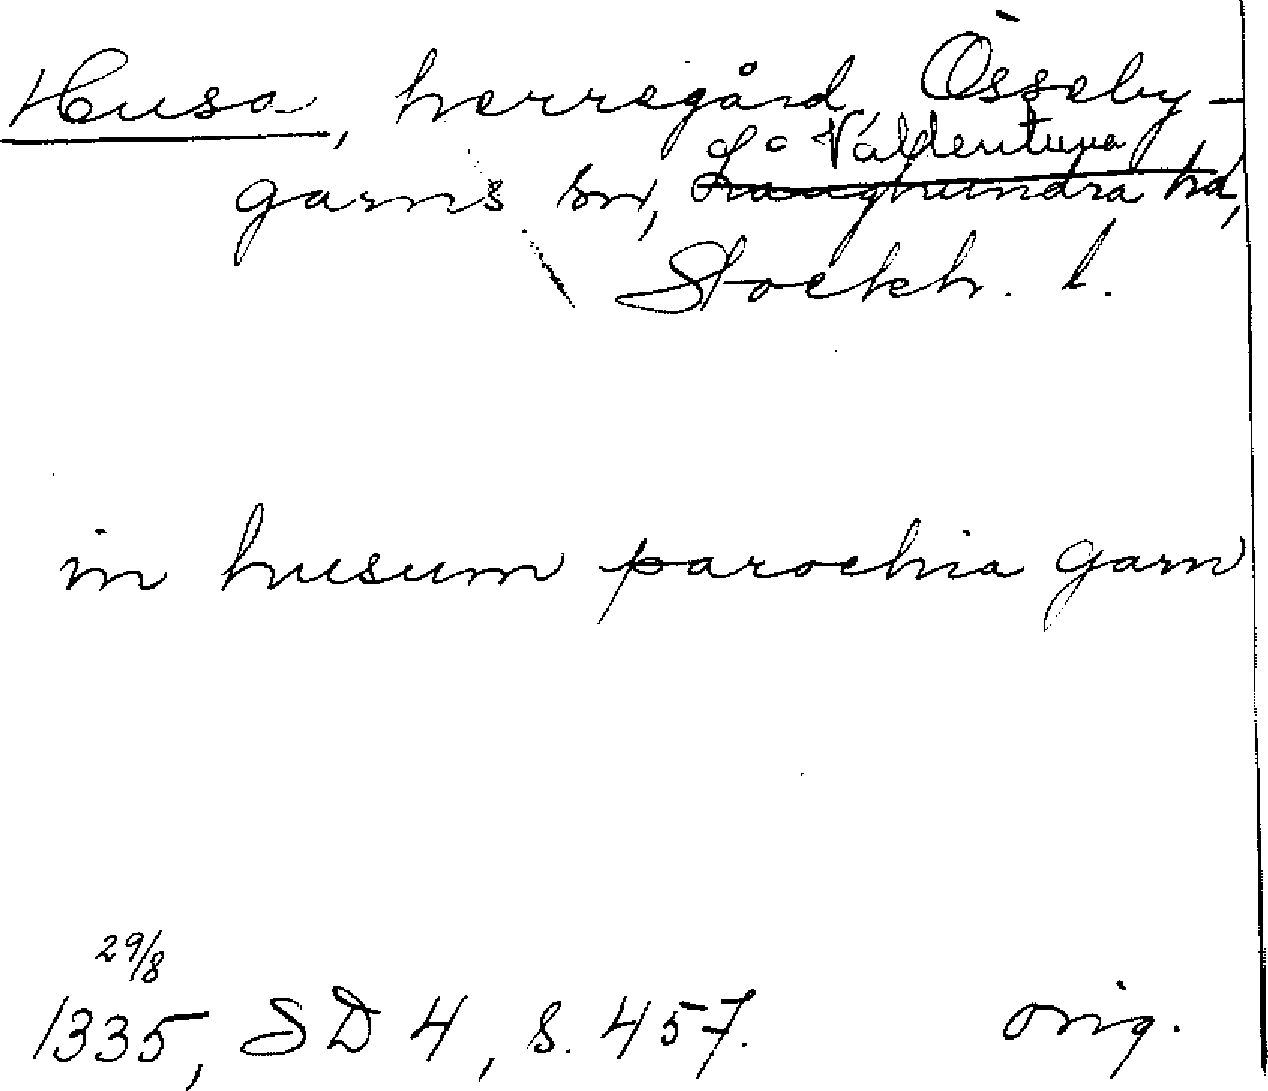 Husa, herregård, Össeby-
Vallentuna
garns sn, Långhundra hd,
Stockh. l.
in husum parochia garn
29/8
1335, SD 4, s. 457. orig.